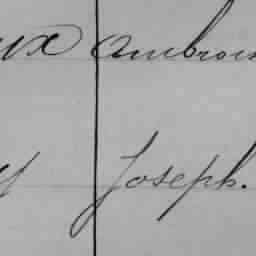 ux Ambrois
y Joseph.